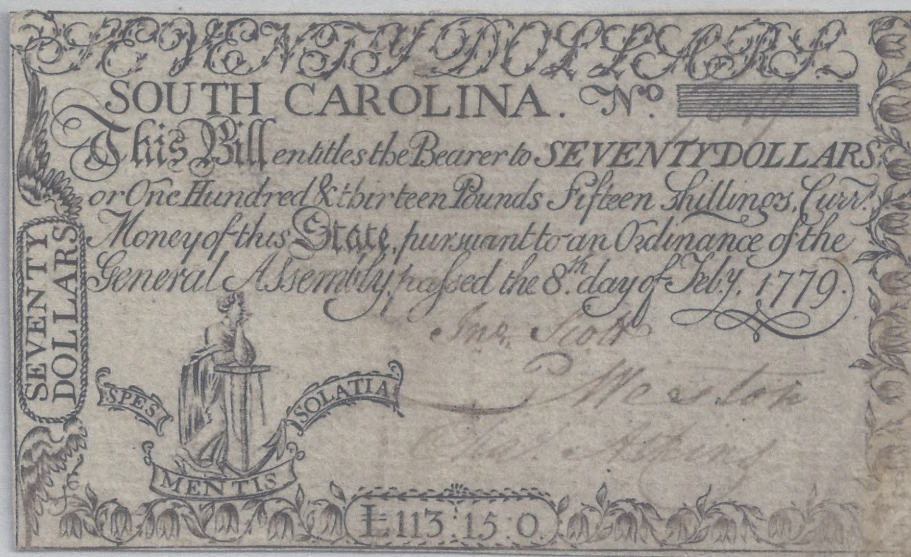 SEVENTY DOLLARS
SOUTH CAROLINA. No.
This Bill entitles the Bearer to SEVENTY DOLLARS,
or One Hundred & thirteen Pounds Fifteen Shillings, Curr.t
Money of this State, pursuant to an Ordinance of the
General Assembly, passed the 8.th day of Feb.y. 1779.
SEVENTY
DOLLARS
Jno. Scott
P Weston
Chas. Atkins
SPES
MENTIS
SOLATIA
£113:15:0